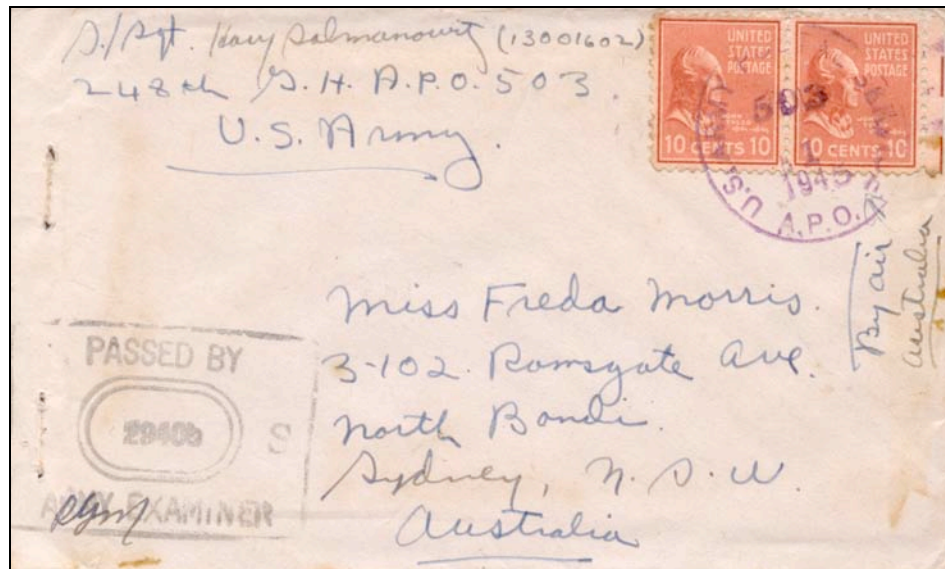 S/Sgt. Harry Salmanowitz (13001602)
248th G.H. A.P.O. 503.
U.S. Army.
UNITED STATES POSTAGE
10 CENTS 10
UNITED STATES POSTAGE
10 CENTS 10
503
1
1945
U.S. A.P.O.
By air
Australia
Miss Freda Morris.
3-102. Ramsgate Ave.
North Bondi.
Sydney, N.S.W.
Australia
PASSED BY
S
ARMY EXAMINER